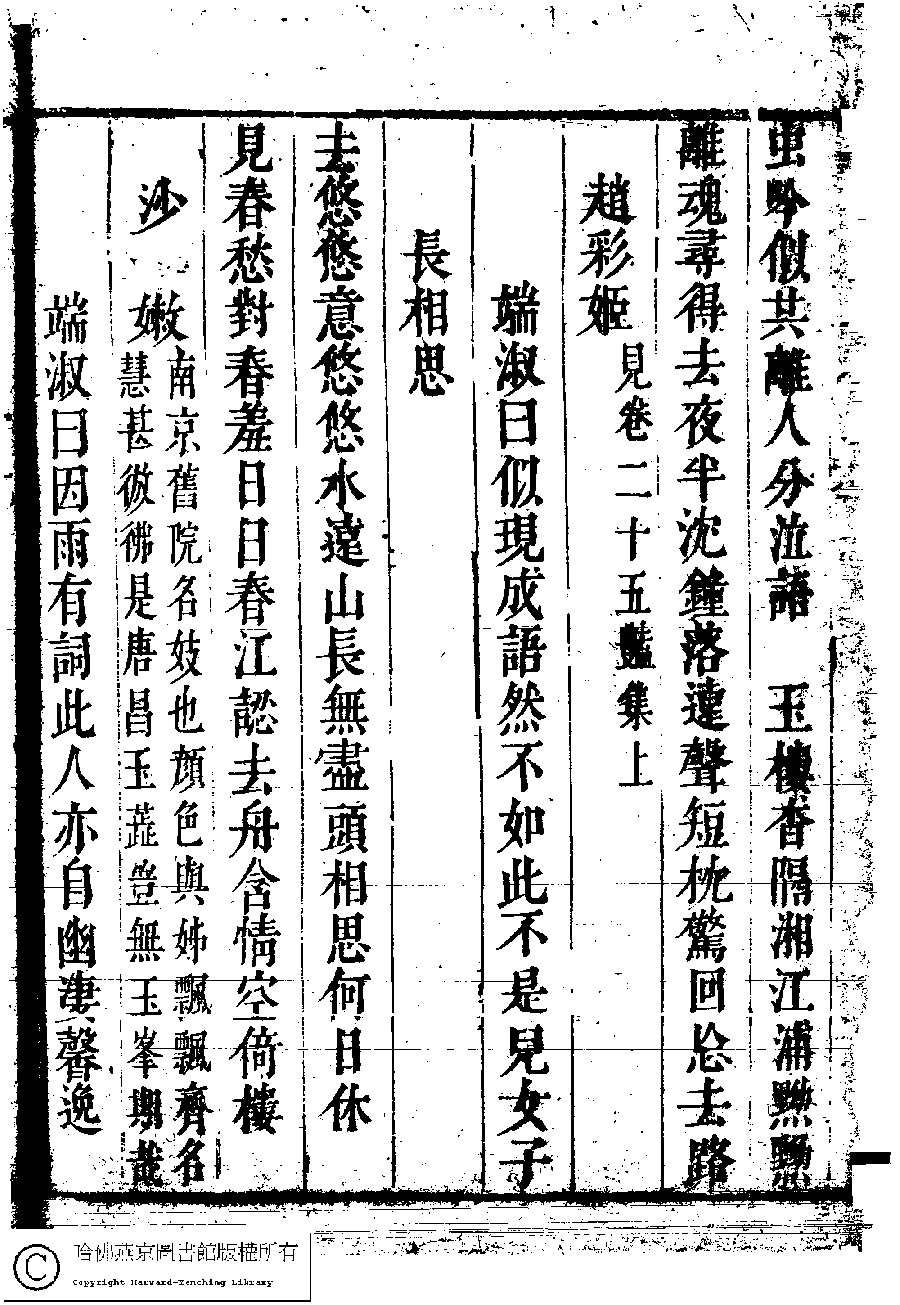 虫吟似共離人分泣語　玉樓香隔湘江浦黯黯
離魂尋得去夜半沈鐘落遠聲短枕驚回忩去路
趙彩姬見卷二十五豔集上
端淑曰似現成語然不如此不是兒女子
長相思
去悠悠意悠悠水遠山長無盡頭相思何日休
見春愁對春羞日日春江認去舟含情空倚樓
沙　嫩南京舊院名妓也顏色與姊飄飄齊名
慧甚彷彿是唐昌玉蕋豈無玉峯期哉
端淑曰因雨有詞此人亦自幽淒聲逸
哈佛燕京圖書館版權所有
Copyright Harvard-Yenching Library